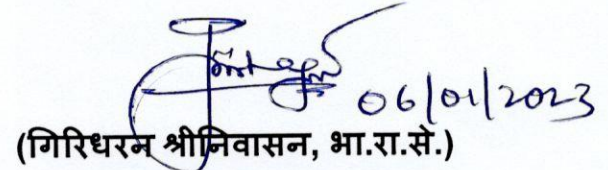 06/01/2023
(गिरिधरन श्रीनिवासन, भा.रा.से.)